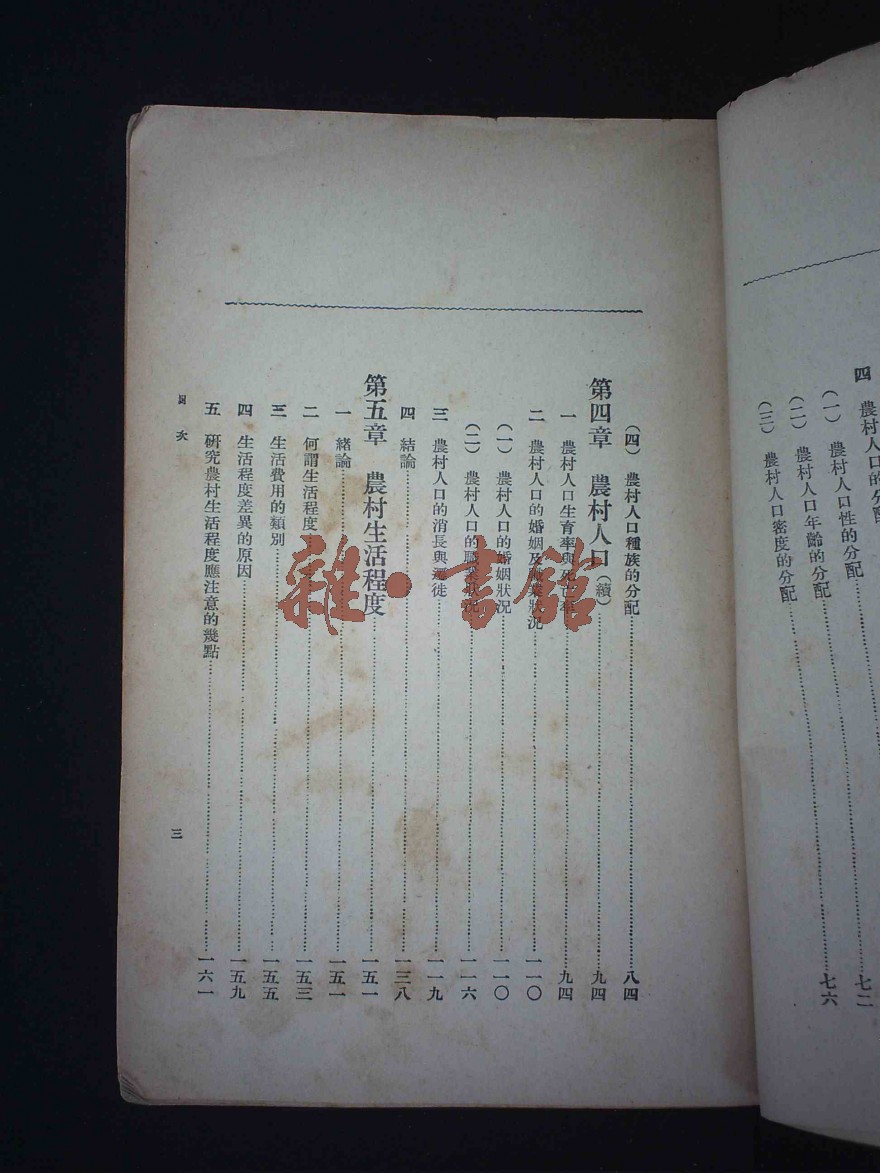 四　農村人口的分配……七二
（一）　農村人口性的分配
（二）　農村人口年齡的分配……七六
（三）　農村人口密度的分配
（四）　農村人口種族的分配……八四
第四章　農村人口（續）……九四
一　農村人口生育率與死亡率……九四
二　農村人口的婚姻及職業狀況……一一〇
（一）　農村人口的婚姻狀況……一一〇
（二）　農村人口的職業狀況……一一六
三　農村人口的消長與遷徙……一一九
四　結論……一三八
第五章　農村生活程度……一五一
一　緒論……一五一
二　何謂生活程度……一五三
三　生活費用的類別……一五五
四　生活程度差異的原因……一五九
五　研究農村生活程度應注意的幾點……一六一
目次
三
雜·書館